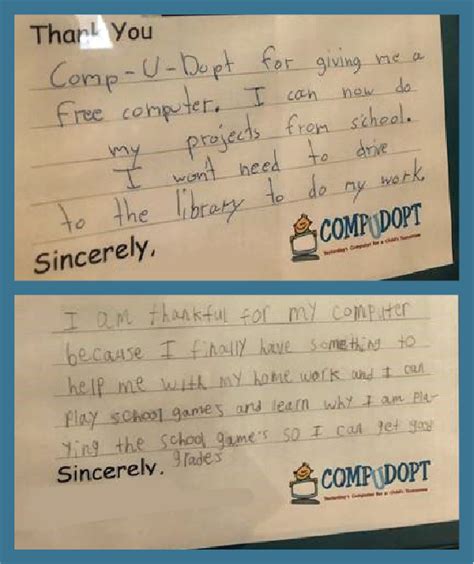 Thank You
Comp-U-Dopt for giving me a
free computer. I can now do
my projects from school.
I wont need to drive
to the library to do my work.
Sincerely,
COMPUDOPT
Yesterday's Computer for a Child's Tomorrow
I am thankful for my computer
because I finally have something to
help me with my home work and I can
Play school game's and learn why I am Pla-
ying the school game's so I can get good
grades
Sincerely,
COMPUDOPT
Yesterday's Computer for a Child's Tomorrow